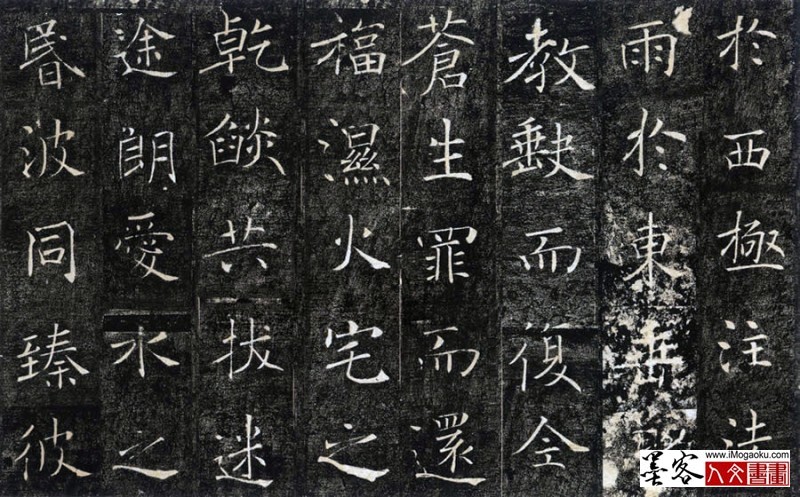 於西極注法
雨於東垂
教缺而復全
蒼生罪而還
福濕火宅之
乾燄共拔迷
途朗愛水之
昬波同臻彼
墨客
www.iMogaoku.com
人文書畫